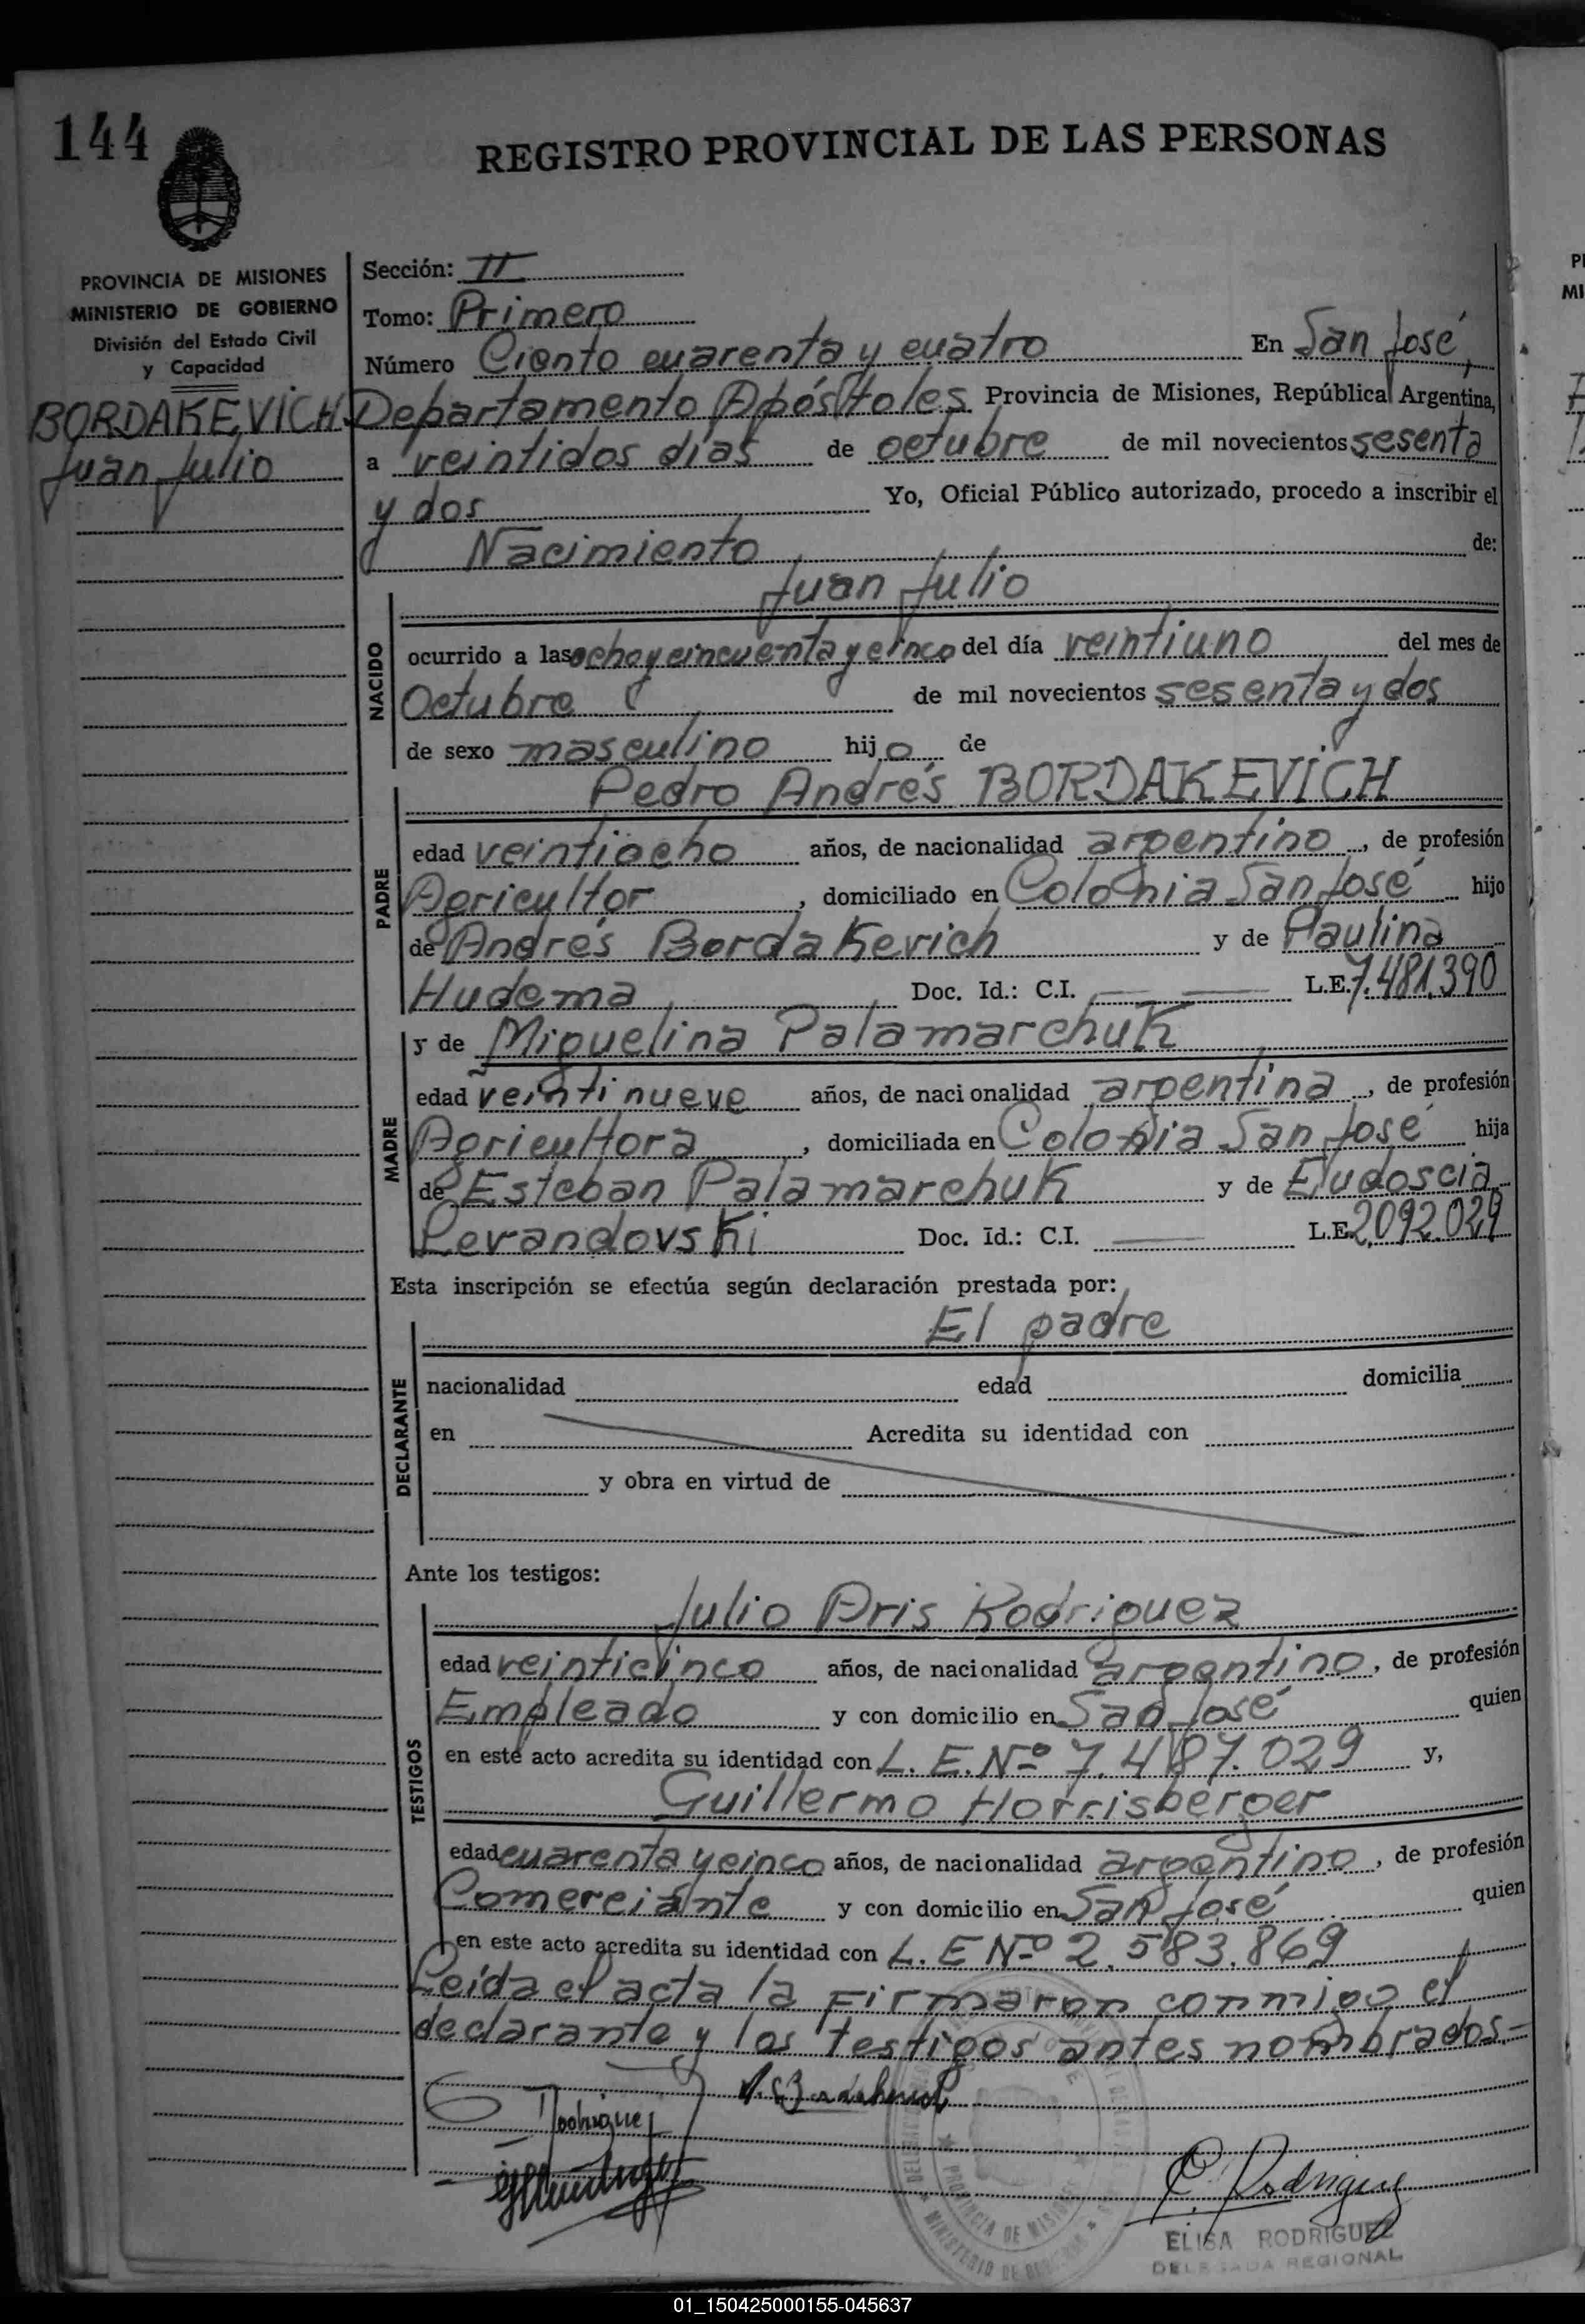 144
REGISTRO PROVINCIAL DE LAS PERSONAS
PROVINCIA DE MISIONES
MINISTERIO DE GOBIERNO
División del Estado Civil
y Capacidad
BORDAKEVICH
Juan Julio
Sección: II
Tomo: Primero
Número Ciento cuarenta y cuatro En San José,
Departamento Apóstoles Provincia de Misiones, República Argentina,
a veintidos días de octubre de mil novecientos sesenta
y dos Yo, Oficial Público autorizado, procedo a inscribir el
Nacimiento de:
Juan Julio
NACIDO
ocurrido a las ocho y cincuenta y cinco del día veintiuno del mes de
Octubre de mil novecientos sesenta y dos
de sexo masculino hijo de
Pedro Andrés BORDAKEVICH
PADRE
edad veintiocho años, de nacionalidad argentino, de profesión
Agricultor, domiciliado en Colonia San José hijo
de Andrés Bordakevich y de Paulina
Hudema Doc. Id.: C.I. — — L.E. 7.481.390
y de Miguelina Palamarchuk
MADRE
edad veintinueve años, de nacionalidad argentina, de profesión
Agricultora, domiciliada en Colonia San José hija
de Esteban Palamarchuk y de Eludoscia
Levandovski Doc. Id.: C.I. — L.E. 2.092.029
Esta inscripción se efectúa según declaración prestada por:
El padre
DECLARANTE
nacionalidad edad domicilia
en Acredita su identidad con
y obra en virtud de
Ante los testigos:
TESTIGOS
Julio Aris Rodriguez
edad veinticinco años, de nacionalidad argentino, de profesión
Empleado y con domicilio en San José quien
en este acto acredita su identidad con L. E. Nº 7.487.029 y,
Guillermo Horrisberger
edad cuarenta y cinco años, de nacionalidad argentino, de profesión
Comerciante y con domicilio en San José quien
en este acto acredita su identidad con L. E Nº 2.583.869
Leída el acta la firmaron conmigo el
declarante y los testigos antes nombrados.=
Rodriguez
E. Rodriguez
PROVINCIA DE MISIONES
MINISTERIO DE GOBIERNO
ELISA RODRIGUEZ
DELEGADA REGIONAL
01_150425000155-045637